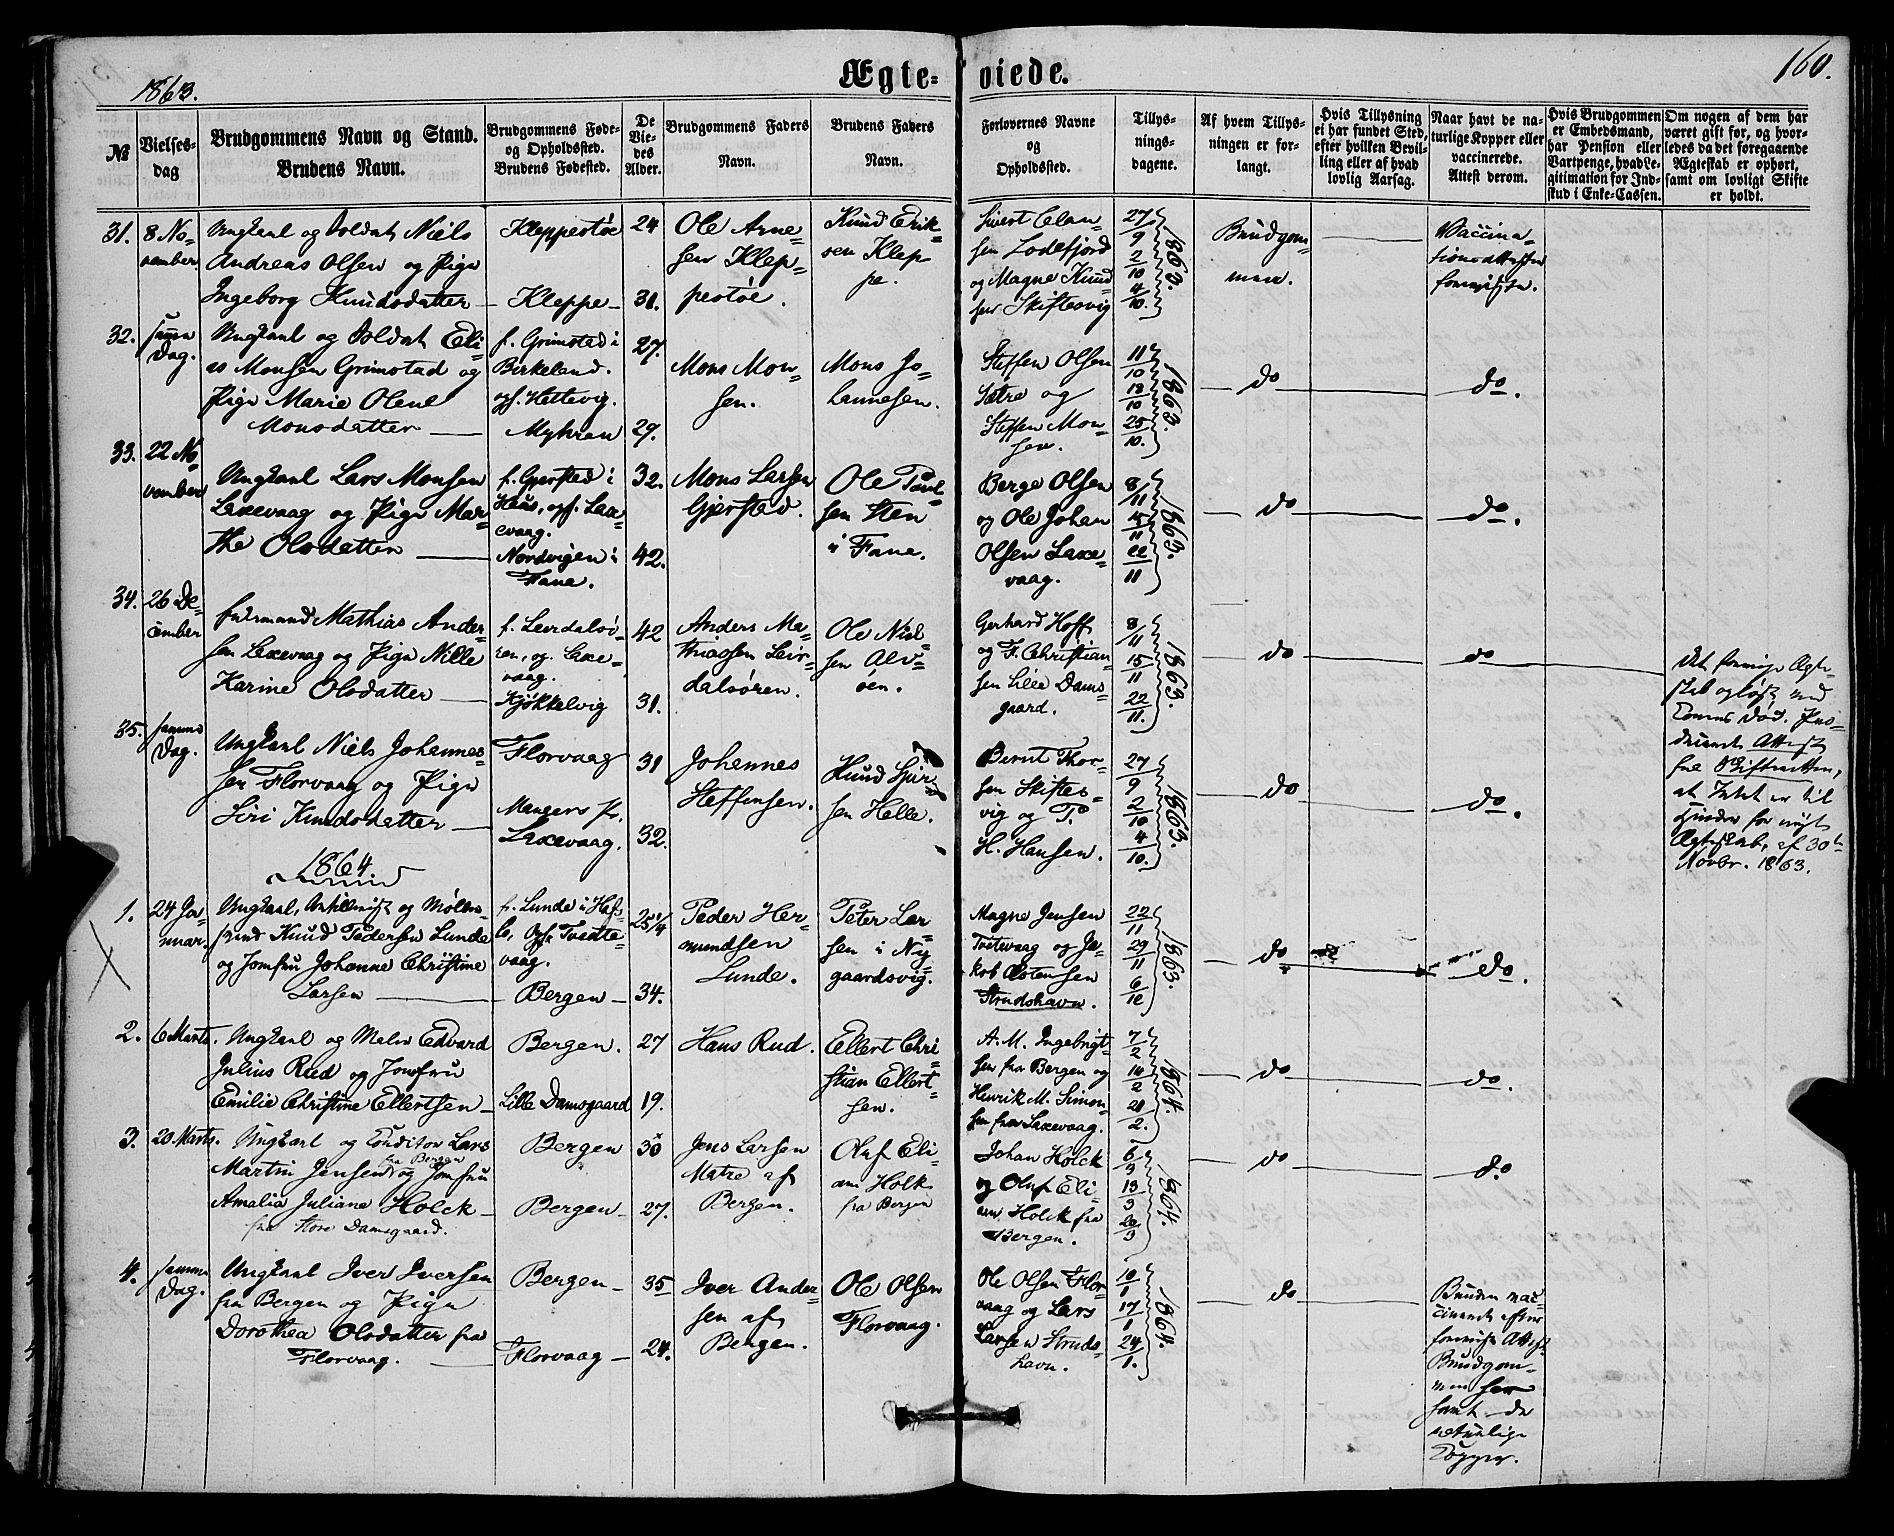 1863.
Ægteviede.
160.
№
Vielses-
dag
Brudgommens Navn og Stand.
Brudens Navn.
Brudgommens Føde-
og Opholdssted.
Brudens Fødested.
De
Vie-
des
Alder.
Brudgommens Faders
Navn.
Brudens Faders
Navn.
Forlovernes Navne
og
Opholdssted.
Tillys-
nings-
dagene.
Af hvem Tillys-
ningen er for-
langt.
Hvis Tillysning
ei har fundet Sted,
efter hvilken Bevil-
ling eller af hvad
lovlig Aarsag.
Naar havt de na-
turlige Kopper eller
vaccinerede.
Attest derom.
Hvis Brudgommen
er Embedsmand,
har Pension eller
Vartpenge, hvad Le-
gitimation for Ind-
skud i Enke-Cassen.
Om nogen af dem har
været gift før, og hvor-
ledes da det foregaaende
Ægteskab er ophørt,
samt om lovligt Skifte
er holdt.
31.
8 No-
vember
Ungkarl og Soldat Niels
Andreas Olsen og Pige
Ingeborg Knudsdatter
Kleppestøe
Kleppe
24
31.
Ole Arne-
sen Klep-
pestøe.
Knud Erik-
sen Klep-
pe.
Sivert Clau-
sen Lodefjord
og Magne Knud-
sen Skiftesvig
27/9
2/10
4/10.
1863.
Brudgom-
men.
Vaccina-
tionsattester
foreviste.
32.
samme
Dag.
Ungkarl og Soldat Eli-
as Monsen Grimstad og
Pige Marie Olene
Monsdatter
f. Grimstad i
Birkeland.
opf. Hettevig.
Myhren
27.
29.
Mons Mon-
sen.
Mons Jo-
hannesen.
Steffen Olsen
Sætre og
Steffen Mon-
sen.
11/10
18/10
25/10.
1863.
do
do.
33.
22 No-
vember
Ungkarl Lars Monsen
Laxevaag og Pige Mar-
the Olsdatter
f. Gjerstad i
Haus, opf. Lax-
evaag.
Nordvigen i
Fane.
32.
42.
Mons Larsen
Gjerstad.
Ole Poul-
sen Sten
i Fane.
Berge Olsen
og Ole Johan
Olsen Laxe-
vaag.
8/11
15/11
22/11
1863.
do
do.
34.
26 De-
cember
Enkemand Mathias Ander-
sen Laxevaag og Pige Nille
Karine Olsdatter
f. Leirdalsø-
ren, og. Laxe-
vaag.
Kjøkkelvig
42
31.
Anders Ma-
thiasen Leir-
dalsøren.
Ole Niel-
sen Alv-
øen.
Gerhard Hoff
og F. Christian-
sen Lille Dams-
gaard.
8/11
15/11
22/11.
1863.
do
do
Det forrige Ægte-
skab opløst ved
Konens Død. Pro-
ducerede Attest
fra Skifteretten,
at Intet er til
Hinder for nyt
Ægteskab, af 30te
Novbr. 1863.
35.
samme
Dag.
Ungkarl Niels Johannes-
sen Florvaag og Pige
Siri Knudsdatter
Florvaag
Mangers Pr.
Laxevaag.
31
32.
Johannes
Steffensen.
Knud
sen Helle.
Bernt Thor-
sen Skiftes-
vig og P.
H. Hansen.
27/9
2/10
4/10.
1863.
do
do.
1864
1.
24 Ja-
nuar.
Ungkarl, Artillerist og Møller-
svend Knud Pedersen Lunde
og Jomfru Johanne Christine
Larsen
f. Lunde i Hafs-
lo, Opf. Tvedte-
vaag.
Bergen
25 1/4
34.
Peder Her-
mundsen
Lunde.
Peter Lar-
sen i Ny-
gaardsvig.
Magne Jensen
Tvetevaag og Ja-
kob Østensen
Strudshavn.
22/11
29/11
6/12
1863.
do
do.
2.
6 Marts.
Ungkarl og Maler Edvard
Julius Rud og Jomfru
Emilie Christine Ellertsen
Bergen.
Lille Damsgaard
27
19.
Hans Rud.
Ellert Chri-
stian Ellert-
sen.
A. M. Ingebrigt-
sen fra Bergen og
Henrik M. Simon-
sen fra Laxevaag.
7/2
14/2
21/2.
1864.
do
do.
3.
20 Marts.
Ungkarl og Conditor Lars
fra Bergen
Martin Jensen og Jomfru
Amalia Juliane Holck
fra Store Damsgaard.
Bergen
Bergen
30
27.
Jens Larsen
Matre af
Bergen.
Oluf Eli-
as Holk
fra Bergen
Johan Holck
og Oluf Eli-
as Holck fra
Bergen.
6/3
13/3
20/3
1864.
do
do.
4.
samme
Dag.
Ungkarl Iver Iversen
fra Bergen og Pige
Dorothea Olsdatter fra
Florvaag.
Bergen
Florvaag
35
24.
Iver Ander-
sen af
Bergen.
Ole Olsen
Florvaag.
Ole Olsen Flor-
vaag og Lars
Larsen Struds-
havn.
10/1
17/1
24/1.
1864.
do
Bruden vac-
cineret efter
foreviist Attest.
Brudgom-
men har
havt de
naturlige
Kopper.